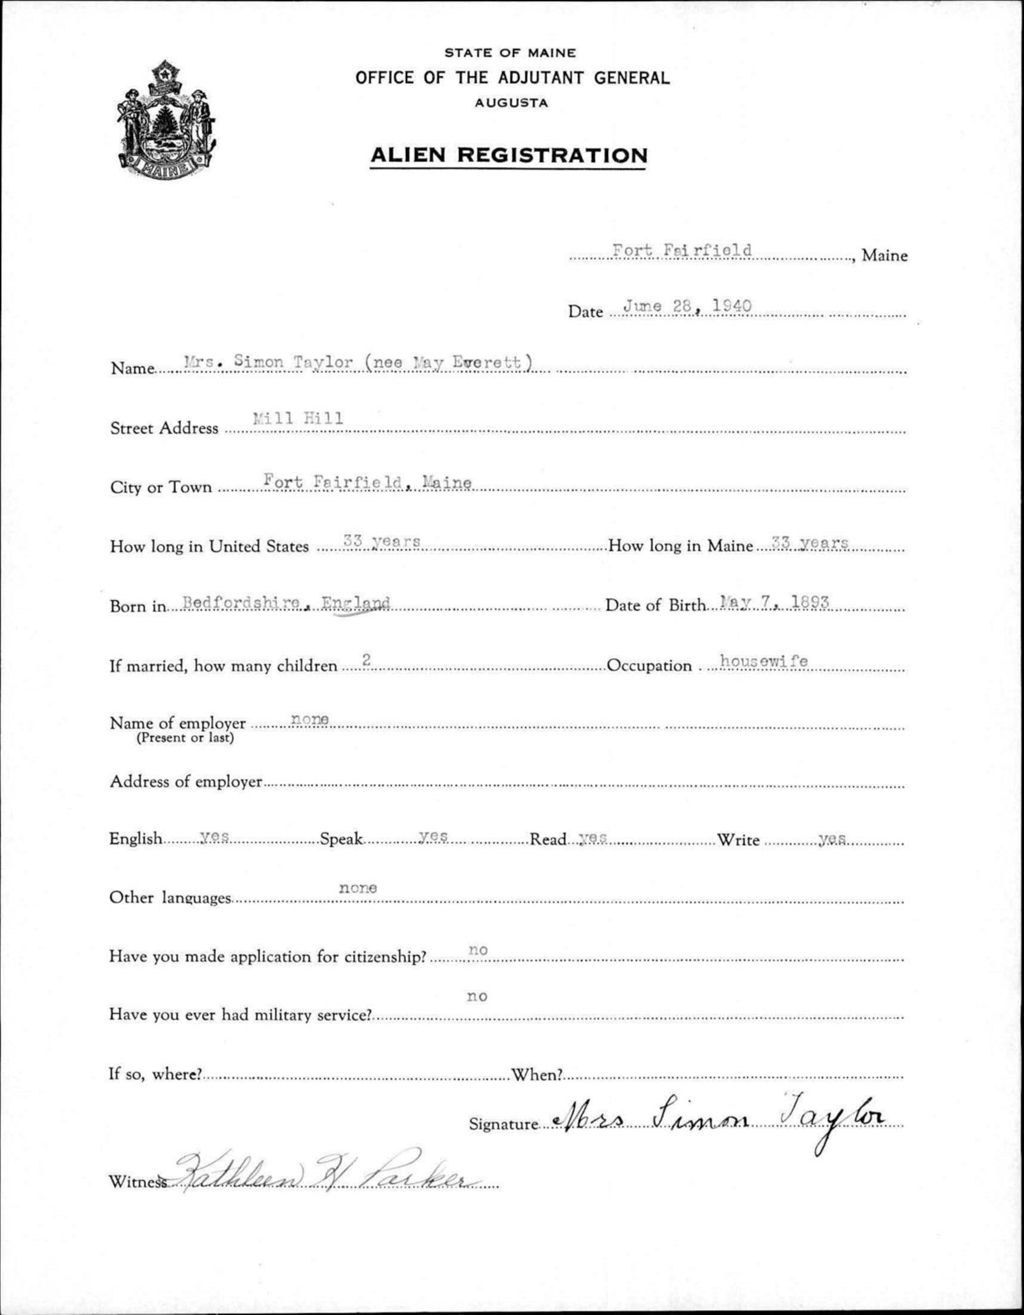 STATE OF MAINE
OFFICE OF THE ADJUTANT GENERAL
AUGUSTA
ALIEN REGISTRATION
MAINE
Fort Fairfield, Maine
Date June 28, 1940
Name Mrs. Simon Taylor (nee May Everett)
Street Address Mill Hill
City or Town Fort Fairfield, Maine
How long in United States 33 years How long in Maine 33 years
Born in Bedfordshire, England Date of Birth May 7, 1893
If married, how many children 2 Occupation housewife
Name of employer none
(Present or last)
Address of employer
English yes Speak yes Read yes Write yes
Other languages none
Have you made application for citizenship? no
no
Have you ever had military service?
If so, where? When?
Signature Mrs Simon Taylor
Witness Kathleen H Parker